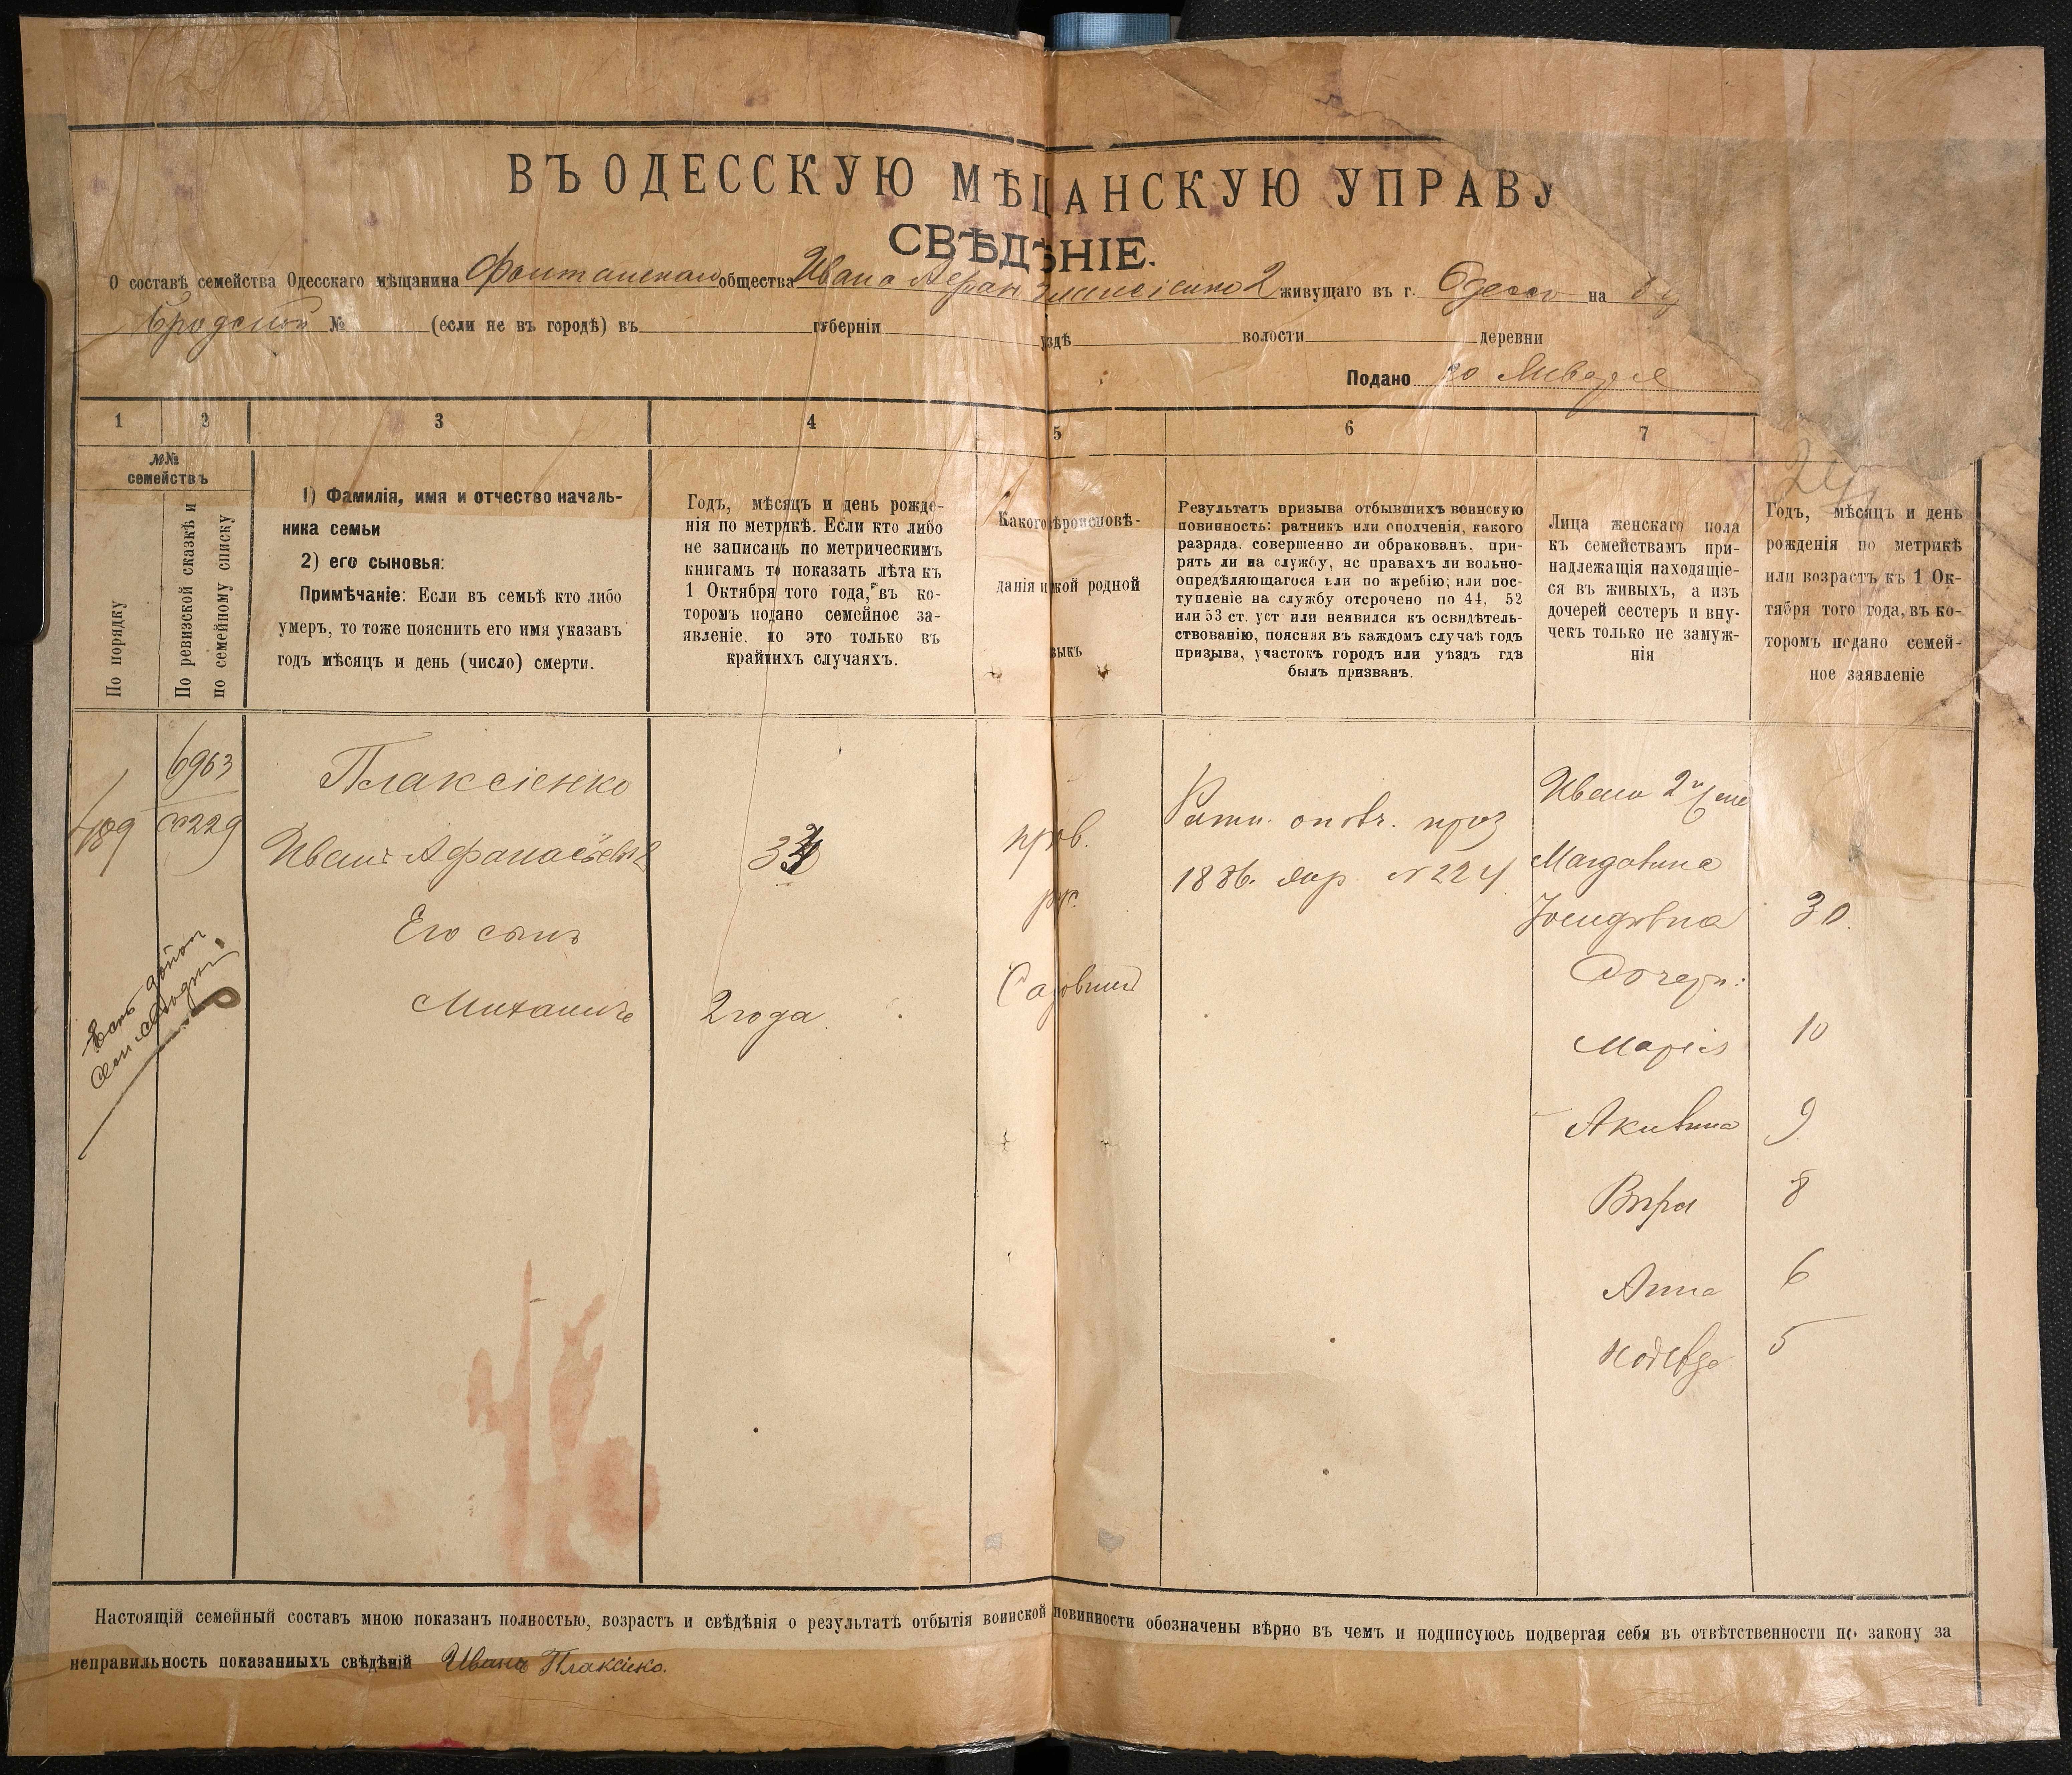 ВЪ ОДЕССКУЮ МѢЩАНСКУЮ УПРАВУ
СВѢДѢНІЕ.
О составѣ семейства Одесскаго мѣщанина Фонтанскаго общества Ивана 2 живущаго въ г. Одесса на
№ (если не въ городѣ) въ губерніи уѣздѣ волости деревни
Подано 20 Января
1 2 3 4 5 6 7
№№
семействъ
По порядку
По ревизской сказкѣ и
по семейному списку
1) Фамилія, имя и отчество началь-
ника семьи
2) его сыновья:
Примѣчаніе: Если въ семьѣ кто либо
умеръ, то тоже пояснить его имя указавъ
годъ мѣсяцъ и день (число) смерти.
Годъ, мѣсяцъ и день рожде-
нія по метрикѣ. Если кто либо
не записанъ по метрическимъ
книгамъ то показать лѣта къ
1 Октября того года, въ ко-
торомъ подано семейное за-
явленіе, но это только въ
крайнихъ случаяхъ.
Какого вѣроисповѣ-
данія и какой родной
языкъ
Результатъ призыва отбывшихъ воинскую
повинность: ратникъ или ополченія, какого
разряда, совершенно ли обракованъ, при-
рятъ ли на службу, нс правахъ ли вольно-
опредѣляющагося или по жребію; или пос-
тупленіе на службу отсрочено по 44, 52
или 53 ст. уст или неявился къ освидѣтель-
ствованію, поясняя въ каждомъ случаѣ годъ
призыва, участокъ городъ или уѣздъ гдѣ
былъ призванъ.
Лица женскаго пола
къ семействамъ при-
надлежащія находящіе-
ся въ живыхъ, а изъ
дочерей сестеръ и вну-
чекъ только не замуж-
нія
Годъ, мѣсяцъ и день
рожденія по метрикѣ
или возрастъ къ 1 Ок-
тября того года, въ ко-
торомъ подано семей-
ное заявленіе
6963
№229
Плаксіенко
Иванъ Афанасьевъ 2
прав.
Ратн. опол. приз
1886. №224
Ивана 2го жена
30
Его сынъ
Михаилъ 2 года
Садовый
Дочери:
Марія 10
Акилина 9
Вѣра 8
Анна 6
Надежда 5
Настоящій семейный составъ мною показанъ полностью, возрастъ и свѣдѣнія о результатѣ отбытія воинской повинности обозначены вѣрно въ чемъ и подписуюсь подвергая себя въ отвѣтственности по закону за
неправильность показанныхъ свѣдѣній Иванъ Плаксіенко.